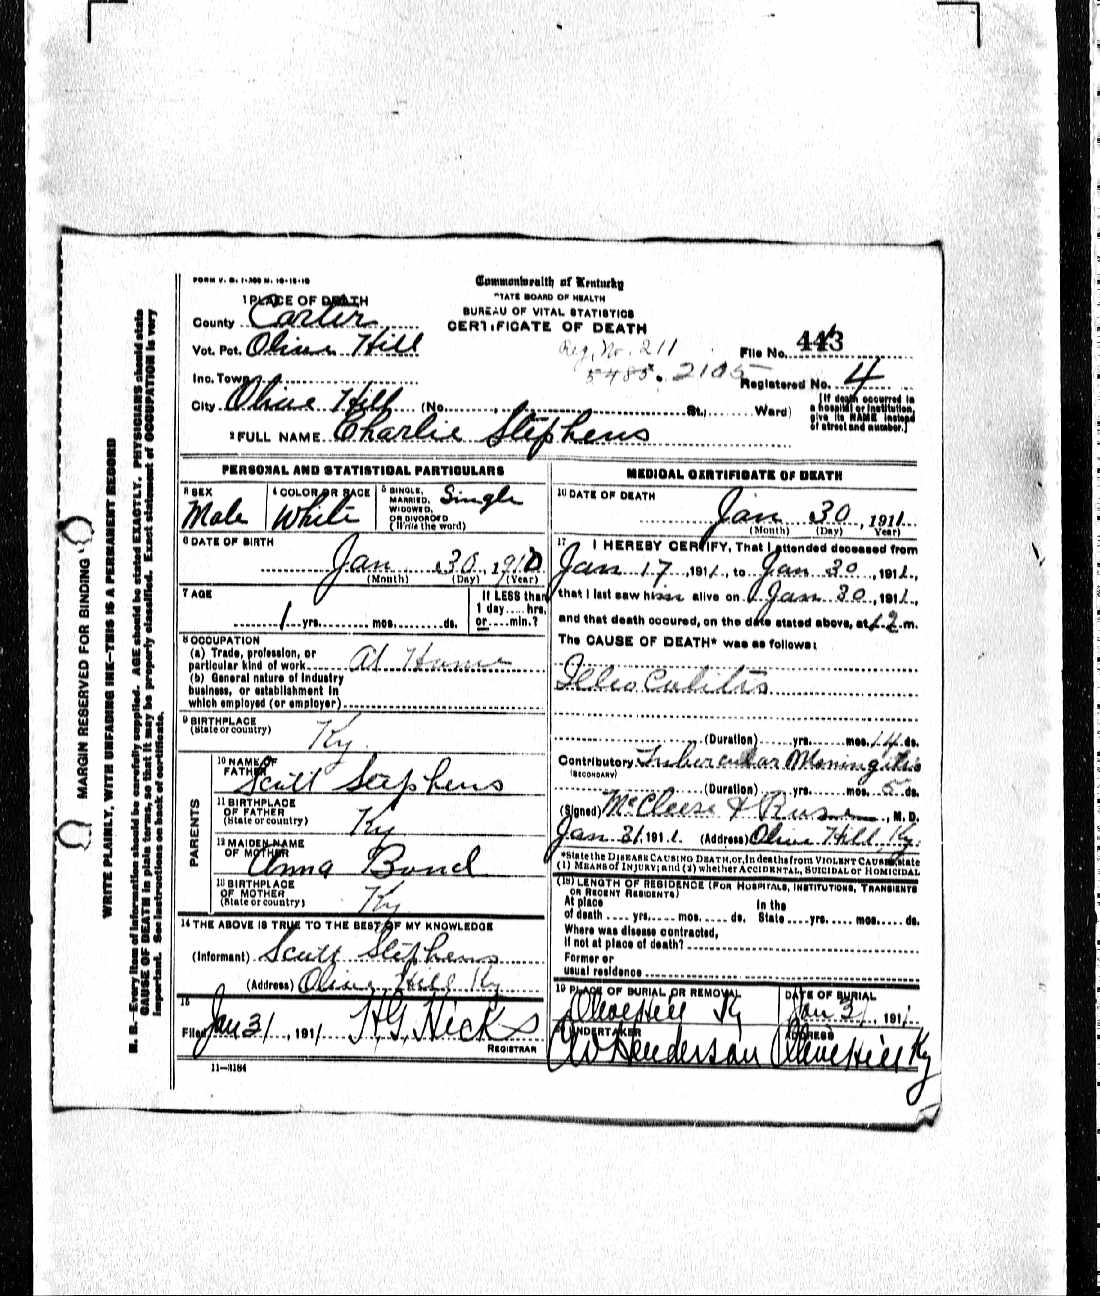 FORM V. S. 1-300 M. 10-15-10
Commonwealth of Kentucky
STATE BOARD OF HEALTH
BUREAU OF VITAL STATISTICS
CERTIFICATE OF DEATH
1 PLACE OF DEATH
County Carter
Vot. Pct. Olive Hill
Reg. No. 211
File No. 443
Inc. Town
5485. 2105
Registered No. 4
City Olive Hill (No. , St., Ward)
[If death occurred in
a hospital or institution,
give its NAME instead
of street and number.]
2 FULL NAME Charlie Stephens
PERSONAL AND STATISTICAL PARTICULARS
3 SEX
Male
4 COLOR OR RACE
White
5 SINGLE,
MARRIED,
WIDOWED,
OR DIVORCED
(Write the word)
Single
6 DATE OF BIRTH
Jan 30, 1910
(Month) (Day) (Year)
7 AGE
1 yrs. mos. ds.
If LESS than
1 day.... hrs.
or.... min.?
8 OCCUPATION
(a) Trade, profession, or
particular kind of work At Home
(b) General nature of industry
business, or establishment in
which employed (or employer)
9 BIRTHPLACE
(State or country)
Ky
PARENTS
10 NAME OF
FATHER
Scott Stephens
11 BIRTHPLACE
OF FATHER
(State or country)
Ky
12 MAIDEN NAME
OF MOTHER
Anna Bond
13 BIRTHPLACE
OF MOTHER
(State or country)
Ky
14 THE ABOVE IS TRUE TO THE BEST OF MY KNOWLEDGE
(Informant) Scott Stephens
(Address) Olive Hill Ky
15
Filed Jan 31, 1911 H G Hicks
REGISTRAR
11-3184
MEDICAL CERTIFICATE OF DEATH
16 DATE OF DEATH
Jan 30, 1911
(Month) (Day) Year)
17 I HEREBY CERTIFY, That I attended deceased from
Jan 17, 1911, to Jan 30, 1911,
that I last saw him alive on Jan 30, 1911,
and that death occured, on the date stated above, at 12 m.
The CAUSE OF DEATH* was as follows:
Illeo Colitis
(Duration) yrs. mos. 14 ds.
Contributory Tubercular Meningitis
(SECONDARY)
(Duration) yrs. mos. 5 ds.
(Signed) McCleese &, M. D.
Jan 31, 1911. (Address) Olive Hill Ky.
*State the DISEASE CAUSING DEATH, or, in deaths from VIOLENT CAUSES, state
(1) MEANS of INJURY; and (2) whether ACCIDENTAL, SUICIDAL or HOMICIDAL
(18) LENGTH OF RESIDENCE (FOR HOSPITALS, INSTITUTIONS, TRANSIENTS
OR RECENT RESIDENTS)
At place In the
of death .... yrs. mos. ds. State yrs. mos. ds.
Where was disease contracted,
if not at place of death?
Former or
usual residence
19 PLACE OF BURIAL OR REMOVAL
Olive Hill Ky
DATE OF BURIAL
Jan 31, 1911
UNDERTAKER
Henderson
ADDRESS
Olive Hill Ky
MARGIN RESERVED FOR BINDING
WRITE PLAINLY, WITH UNFADING INK—THIS IS A PERMANENT RECORD
N. B.—Every item of information should be carefully supplied. AGE should be stated EXACTLY. PHYSICIANS should state
CAUSE OF DEATH in plain terms, so that it may be properly classified. Exact statement of OCCUPATION is very
important. See instructions on back of certificate.